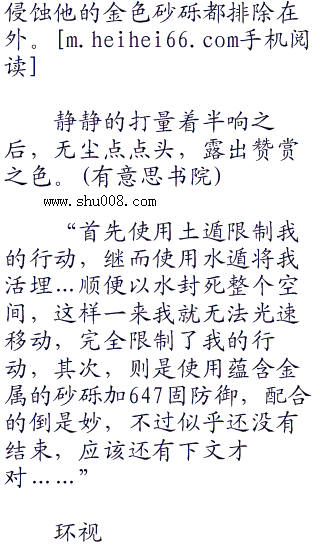 侵蚀他的金色砂砾都排除在
外。[m.heihei66.com手机阅
读]
静静的打量着半响之
后，无尘点点头，露出赞赏
之色。(有意思书院)
www.shu008.com
“首先使用土遁限制我
的行动，继而使用水遁将我
活埋…顺便以水封死整个空
间，这样一来我就无法光速
移动，完全限制了我的行
动，其次，则是使用蕴含金
属的砂砾加647固防御，配合
的倒是妙，不过似乎还没有
结束，应该还有下文才
对……”
环视